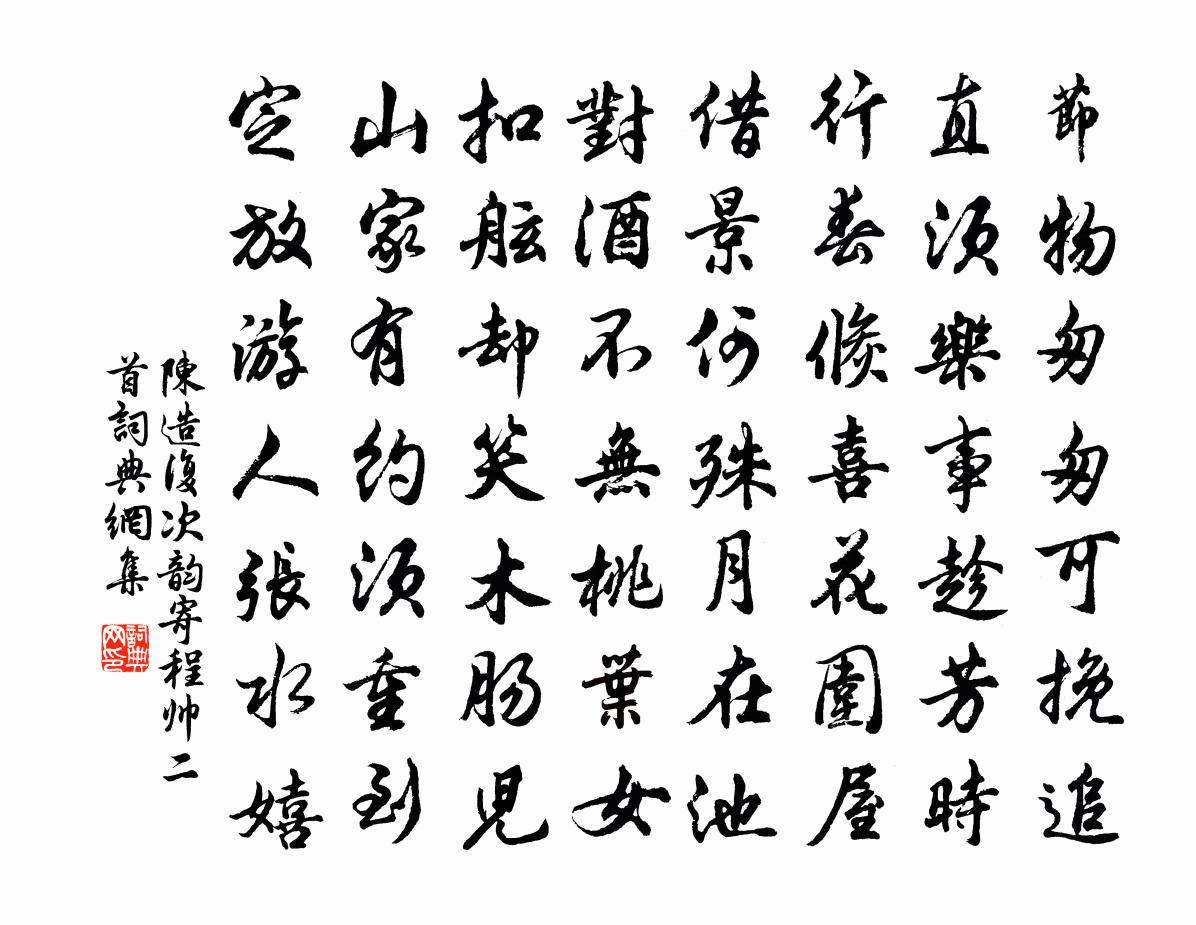 節物匆匆可挽追
直須樂事趁芳時
行春倏喜花圍屋
借景何殊月在池
對酒不無桃葉女
扣舷却笑木腸兒
山家有約須重到
定放游人張水嬉
陳造復次韵寄程帅二
首詞典網集
詞典网印